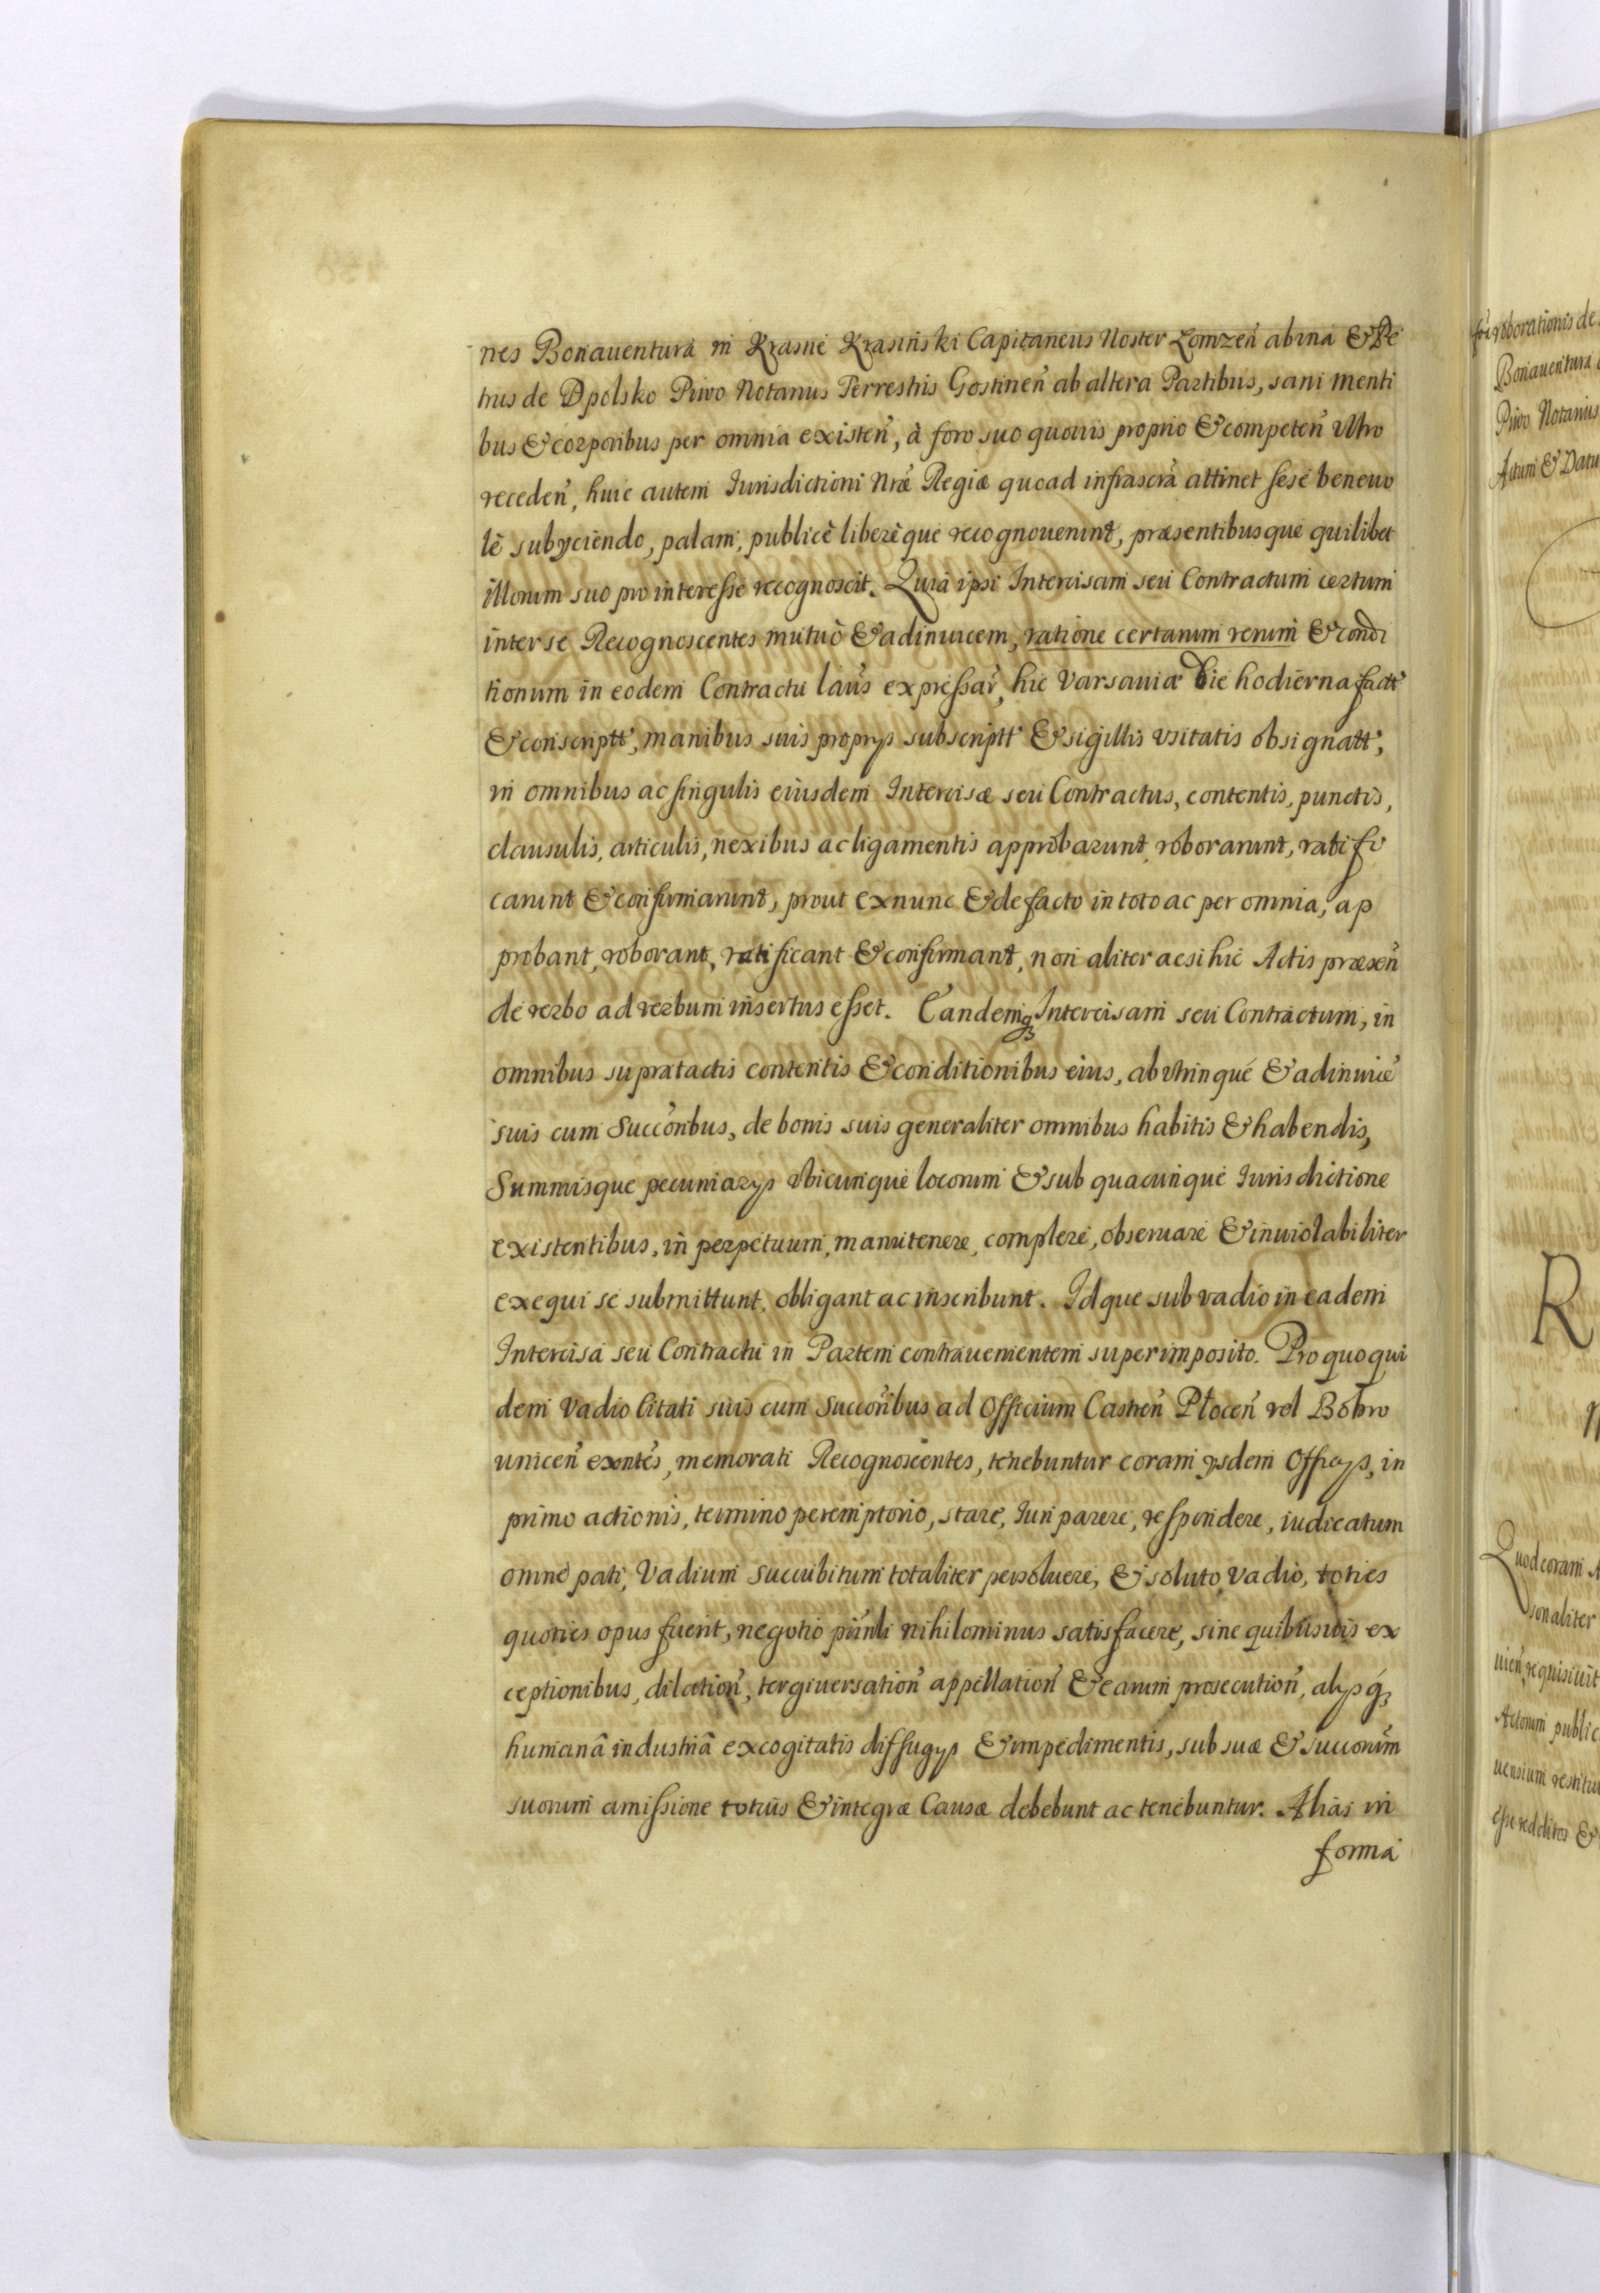 nes Bonauentura in Krasne Krasinski Capitaneus Noster Lomzen̄ ab vna & Pe
trus de Opolsko Piwo Notarius Terrestris Gostinen̄ ab altera Partibus, sani menti
bus & corporibus per omnia existen̄, à foro suo quouis proprio & competen̄ vltro
receden̄, huic autem Iurisdictioni Nrǣ Regiæ quoad infrascrā attinet sese beneuo
lè subyciendo, palam, publicè liberèque recognouerunt, præsentibusque quilibet
illorum suo pro interesse recognoscit. Quia ipsi Intercisam seu Contractum certum
inter se Recognoscentes mutuò & adinuicem, ratione certarum rerum & condi
tionum in eodem Contractu latiūs expressar̄, hic Varsauiæ die hodierna fact̄
& conscriptt, manibus suis proprys subscriptt & sigillis vsitatis obsignatt,
in omnibus ac singulis eiusdem Intercisæ seu Contractus, contentis, punctis,
clausulis, articulis, nexibus ac ligamentis approbarunt, roborarunt, ratifi
carunt & confirmarunt, prout ex nunc & de facto in toto ac per omnia, ap
probant, roborant, ratificant & confirmant, non aliter ac si hic Actis præsen̄
de verbo ad verbum insertus esset. Eandemq3 Intercisam seu Contractum, in
omnibus supratactis contentis & conditionibus eius, ab vtrinque & adinuicē
suis cum Succōribus, de bonis suis generaliter omnibus habitis & habendis,
Summisque pecuniarys vbicunque locorum & sub quacunque Iurisdictione
existentibus, in perpetuum, manutenere, complere, obseruare & inuiolabiliter
exequi se submittunt, obligant ac inscribunt. Idque sub vadio in eadem
Intercisa seu Contractu in Partem contrauenientem superimposito. Pro quo qui
dem Vadio Citati suis cum Succōribus ad Officium Castren̄ Płocen̄ vel Bobro
unicen̄ exn̄tes, memorati Recognoscentes, tenebuntur coram ysdem Officys, in
primo actionis, termino peremptorio, stare, Iuri parere, respondere, iudicatum
omne pati, Vadium succubitum totaliter persoluere, & soluto vadio, toties
quoties opus fuerit, negotio pūnti nihilominus satisfacere, sine quibusuis ex
ceptionibus, dilation̄, tergiuersation̄ appellation̄ & earum prosecution̄, alysq3
humanâ industriâ excogitatis diffugys & impedimentis, sub suæ & succorūm
suorum amissione totius & integræ Causæ debebunt ac tenebuntur. Alias in
forma
roborationis de
Bonauentura
Piwo Notarius
Actum & Datu
R
Quod coram A
sonaliter
uien̄ requisiuit
Actorum public
uensium restitu
esse redditos &